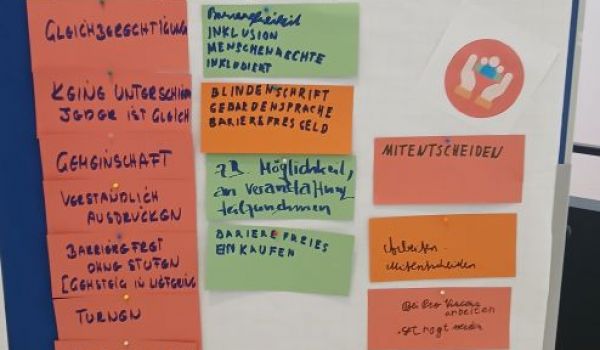 GLEICHBERECHTIGUNG
KEINE UNTERSCHIE
JEDER IST GLEICH
GEMEINSCHAFT
VERSTÄNDLICH
AUSDRÜCKEN
BARRIEREFREI
OHNE STUFEN
[GEHSTEIG IN
TURNEN
Barrierefreiheit
INKLUSION
MENSCHENRECHTE
INKLUDIERT
BLINDENSCHRIFT
GEBÄRDENSPRACHE
BARIEREFREIES GELD
z.B. Möglichkeit,
an Veranstaltung
teilzunehmen
BARIEREFREIES
EINKAUFEN
MITENTSCHEIDEN
Arbeiten
Mitentscheiden
Bei Pro
arbeiten